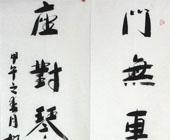 門無車
座對琴
甲午之春月